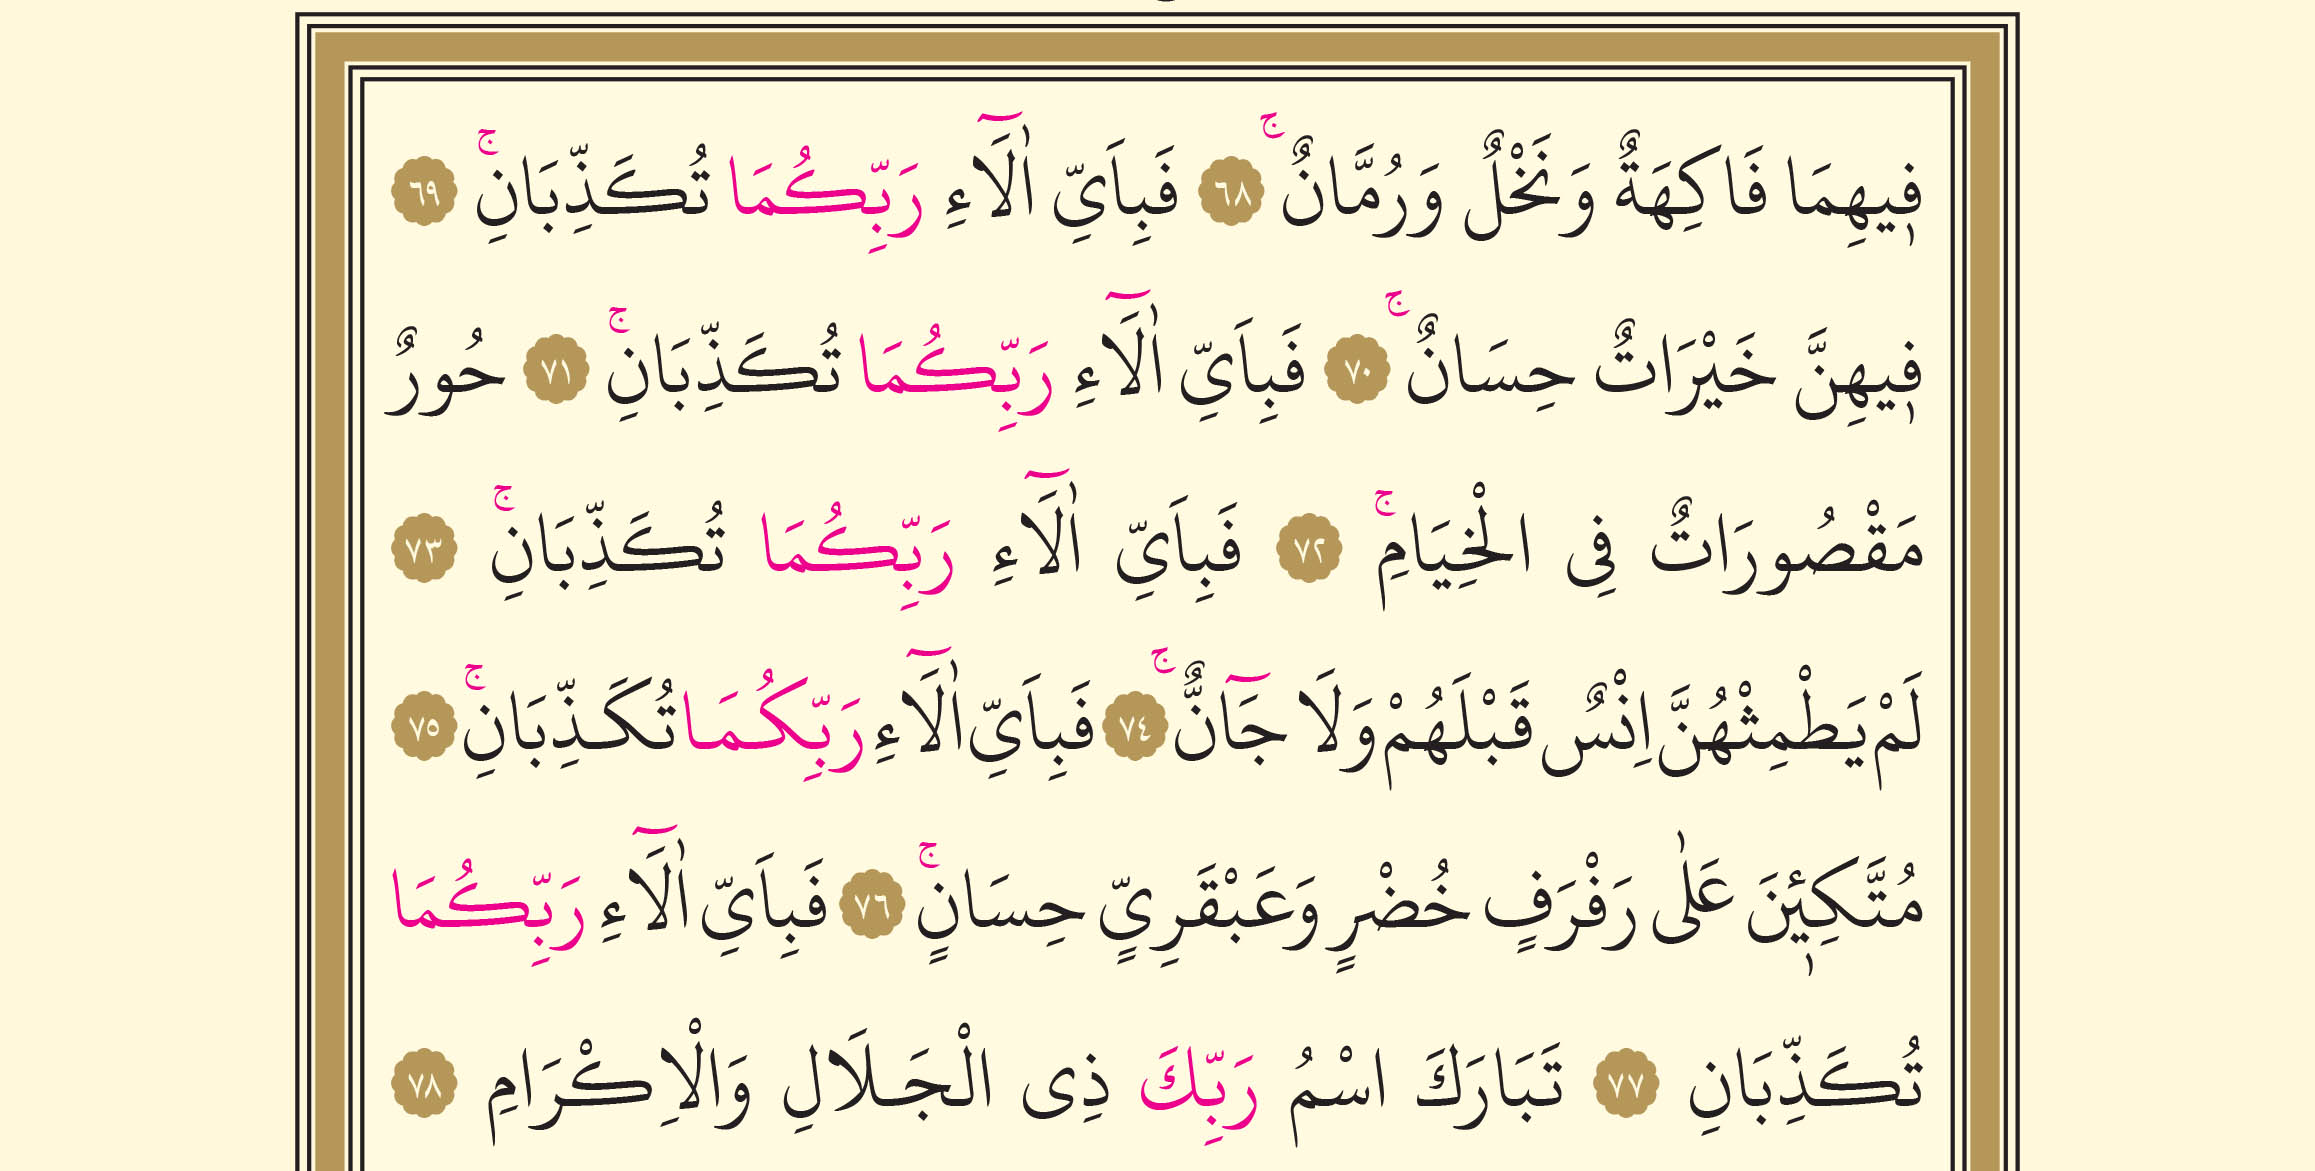 فٖيهِمَا فَاكِهَةٌ وَنَخْلٌ وَرُمَّانٌۚ ٦٨ فَبِاَيِّ اٰلَٓاءِ رَبِّكُمَا تُكَذِّبَانِۚ ٦٩
فٖيهِنَّ خَيْرَاتٌ حِسَانٌۚ ٧٠ فَبِاَيِّ اٰلَٓاءِ رَبِّكُمَا تُكَذِّبَانِۚ ٧١ حُورٌ
مَقْصُورَاتٌ فِى الْخِيَامِۚ ٧٢ فَبِاَيِّ اٰلَٓاءِ رَبِّكُمَا تُكَذِّبَانِۚ ٧٣
لَمْ يَطْمِثْهُنَّ اِنْسٌ قَبْلَهُمْ وَلَا جَٓانٌّۚ ٧٤ فَبِاَيِّ اٰلَٓاءِ رَبِّكُمَا تُكَذِّبَانِۚ ٧٥
مُتَّكِـٖٔينَ عَلٰى رَفْرَفٍ خُضْرٍ وَعَبْقَرِيٍّ حِسَانٍۚ ٧٦ فَبِاَيِّ اٰلَٓاءِ رَبِّكُمَا
تُكَذِّبَانِ ٧٧ تَبَارَكَ اسْمُ رَبِّكَ ذِى الْجَلَالِ وَالْاِكْرَامِ ٧٨